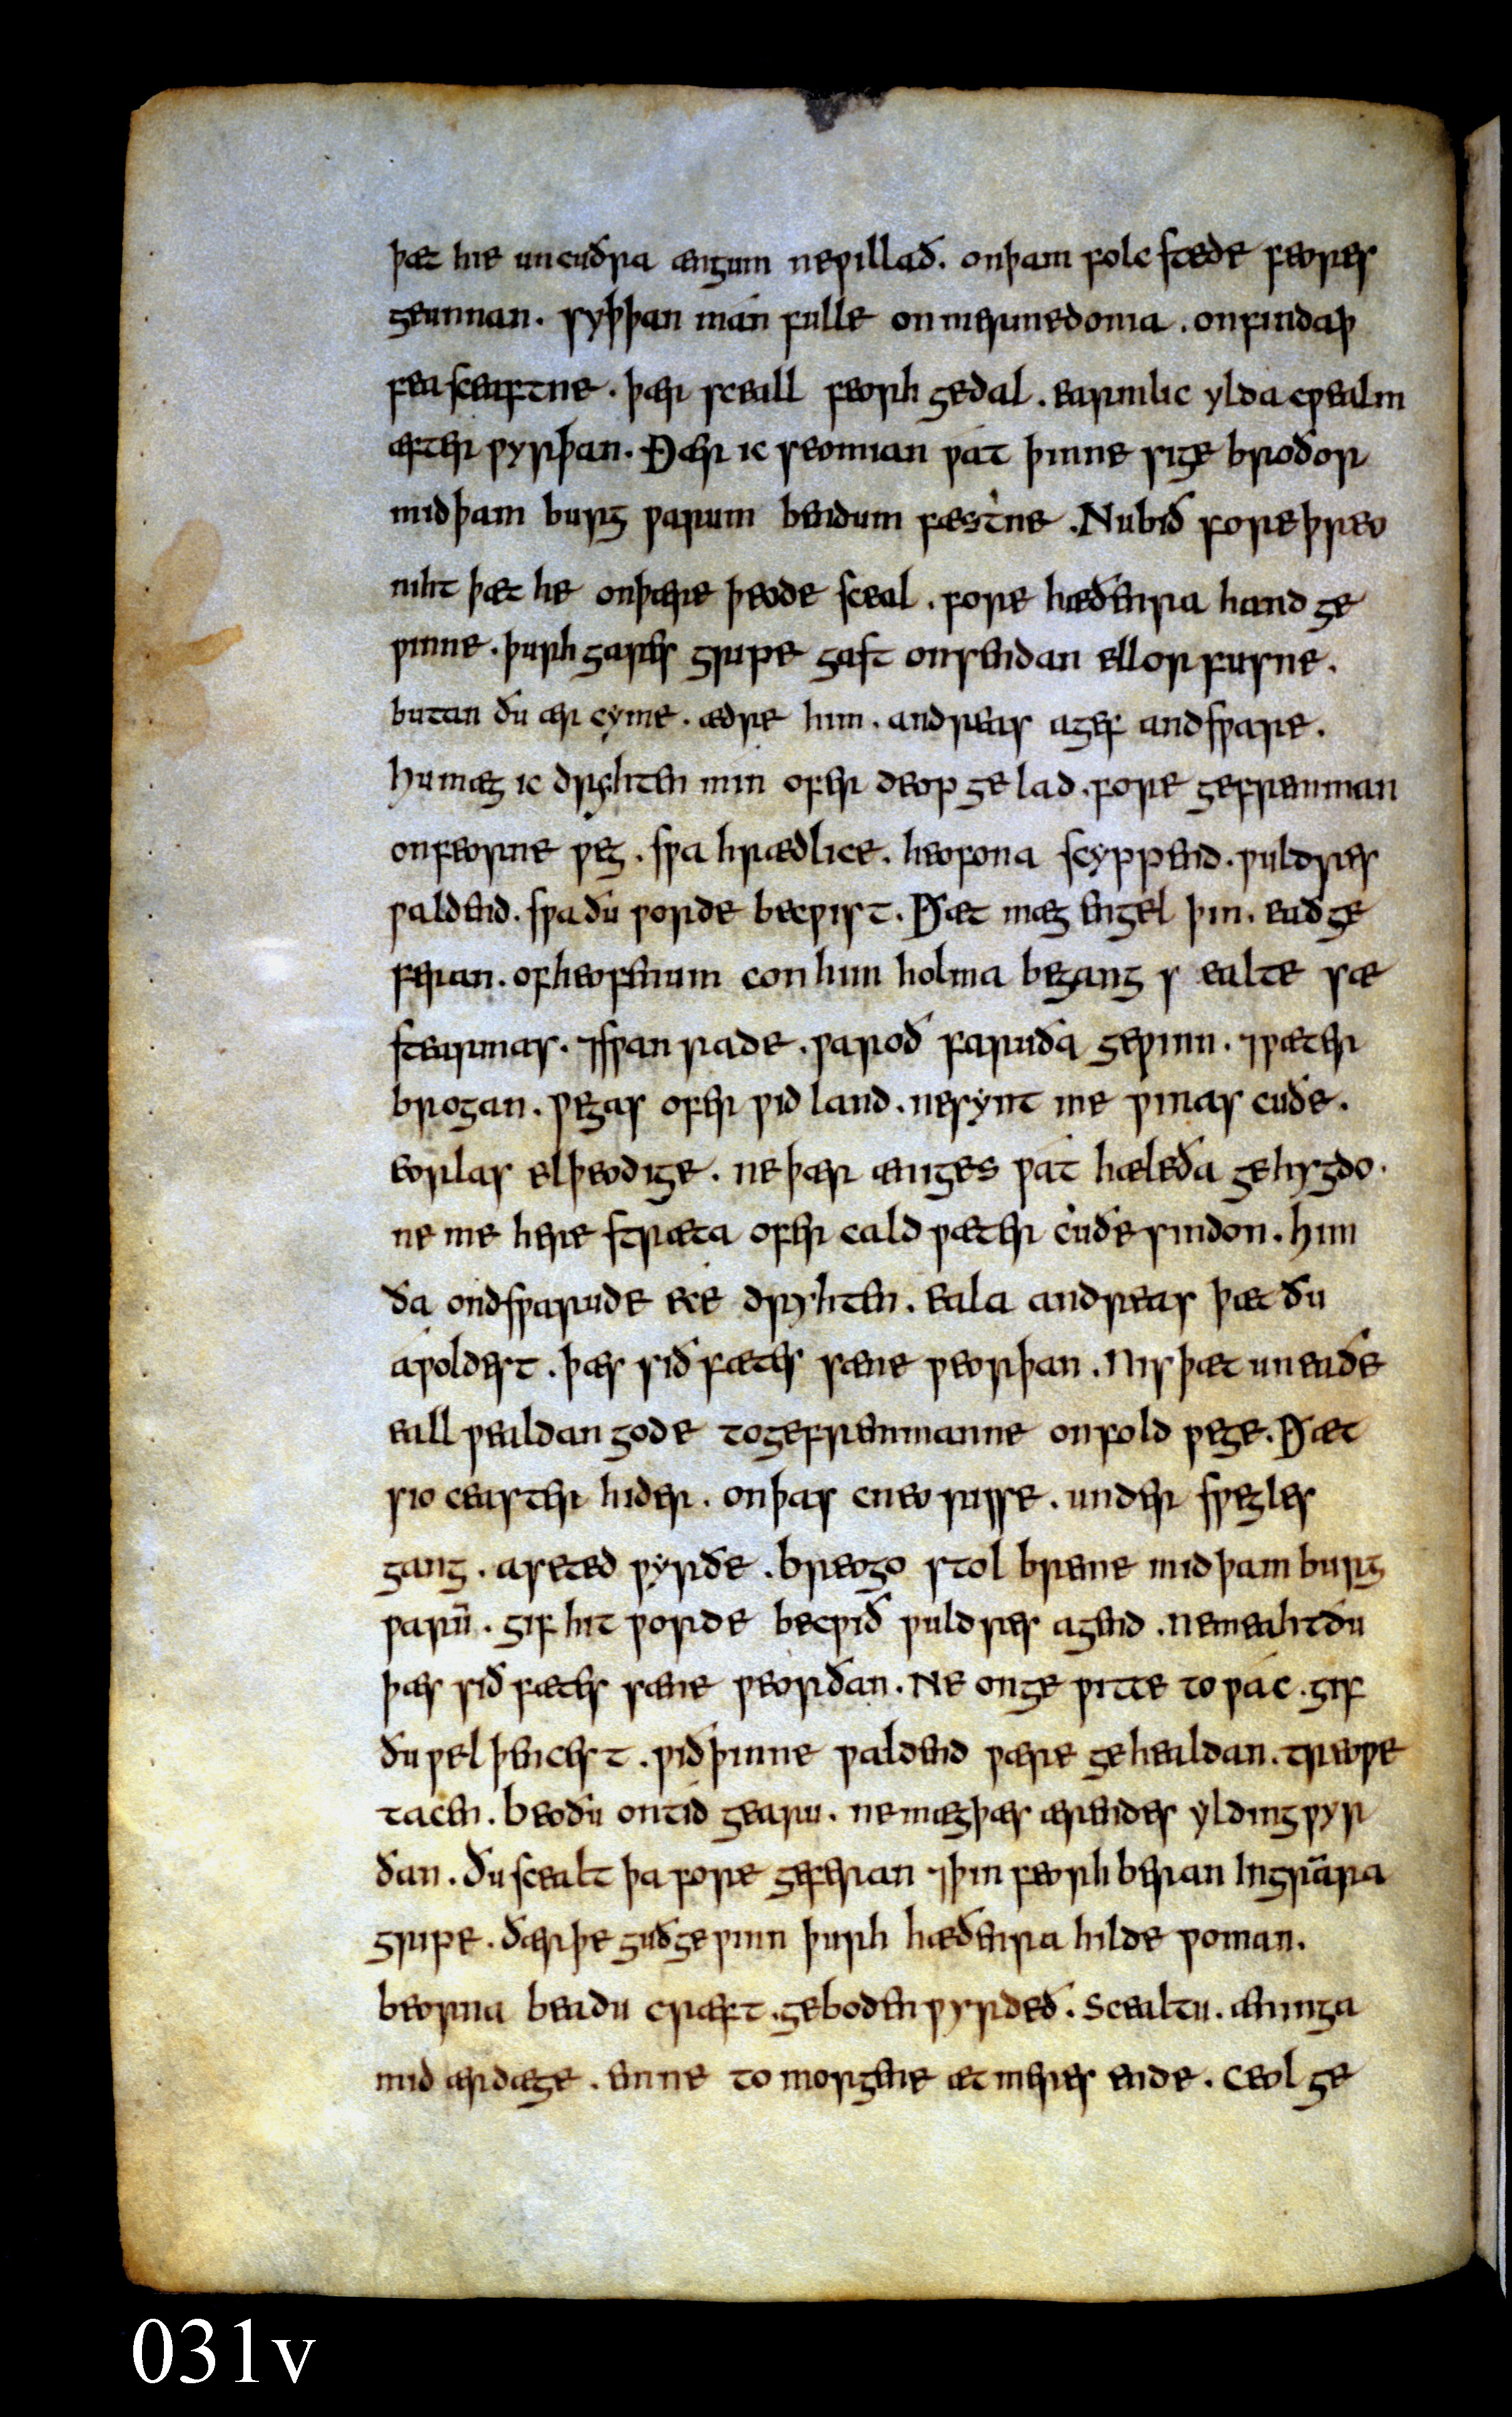 þæt hie uncuðra ængum ne ƿillað . onþam folc stede feores
geunnan . syþþan mán fulle on mermedonia . onfindaþ
fea sceaftne . þær sceall feorh gedal . earmlic ylda cƿealm
æfter ƿyrþan . Ðær ic seomian ƿát þinne sige broðor
mid þam burg ƿarum bendum fæstne . Nu bið fore þreo
niht þæt he onþære þeode sceal . fore hæðenra hand ge
ƿinne . þurh gares gripe gast onsendan ellor fusne .
butan ðu ær cyme . ædre him . andreas agef andsƿare .
hu mæg ic dryhten min ofer deop ge lad . fore gefremman
onfeorne ƿeg . sƿa hrædlice . heofona scyppend . ƿuldres
ƿaldend . sƿa ðu ƿorde becƿist . Ðæt mæg engel þin . eað ge
feran . of heofenum con him holma begang s ealte sæ
streamas . ⁊ sƿan rade . ƿaroð faruða geƿinn . ⁊ ƿæter
brogan . ƿegas ofer ƿid land . ne synt me ƿinas cuðe .
eorlas elþeodige . ne þær æniges ƿát hæleða gehygdo .
ne me here stræta ofer cald ƿæter cuðe sindon . him
ða ondsƿarude ece dryhten . eala andreas þæt ðu
á ƿoldest . þæs sið fætes sæne ƿeorþan . Nis þæt uneaðe
eall ƿealdan gode to gefremmanne onfold ƿege . Ðæt
sio ceaster hider . on þas cneorisse . under sƿegles
gang . aseted ƿyrðe . breogo stol breme mid þam burg
ƿarū . gif hit ƿorde becƿið ƿuldres agend . ne meaht ðu
þæs sið fætes sæne ƿeorðan . Ne onge ƿitte to ƿác . gif
ðu ƿel þencest . ƿið þinne ƿaldend ƿære gehealdan . treoƿe
tacen . beo ðu on tid gearu . ne mæg þæs ærendes ylding ƿyr
ðan . ðu scealt þa fore geferan ⁊ þin feorh beran In grāra
gripe . ðær þe guð geƿinn þurh hæðenra hilde ƿoman .
beorna beadu cræft . geboden ƿyrdeð . Scealtu . æninga
mid ærdæge . emne to morgene æt meres ende . Ceol ge
031v